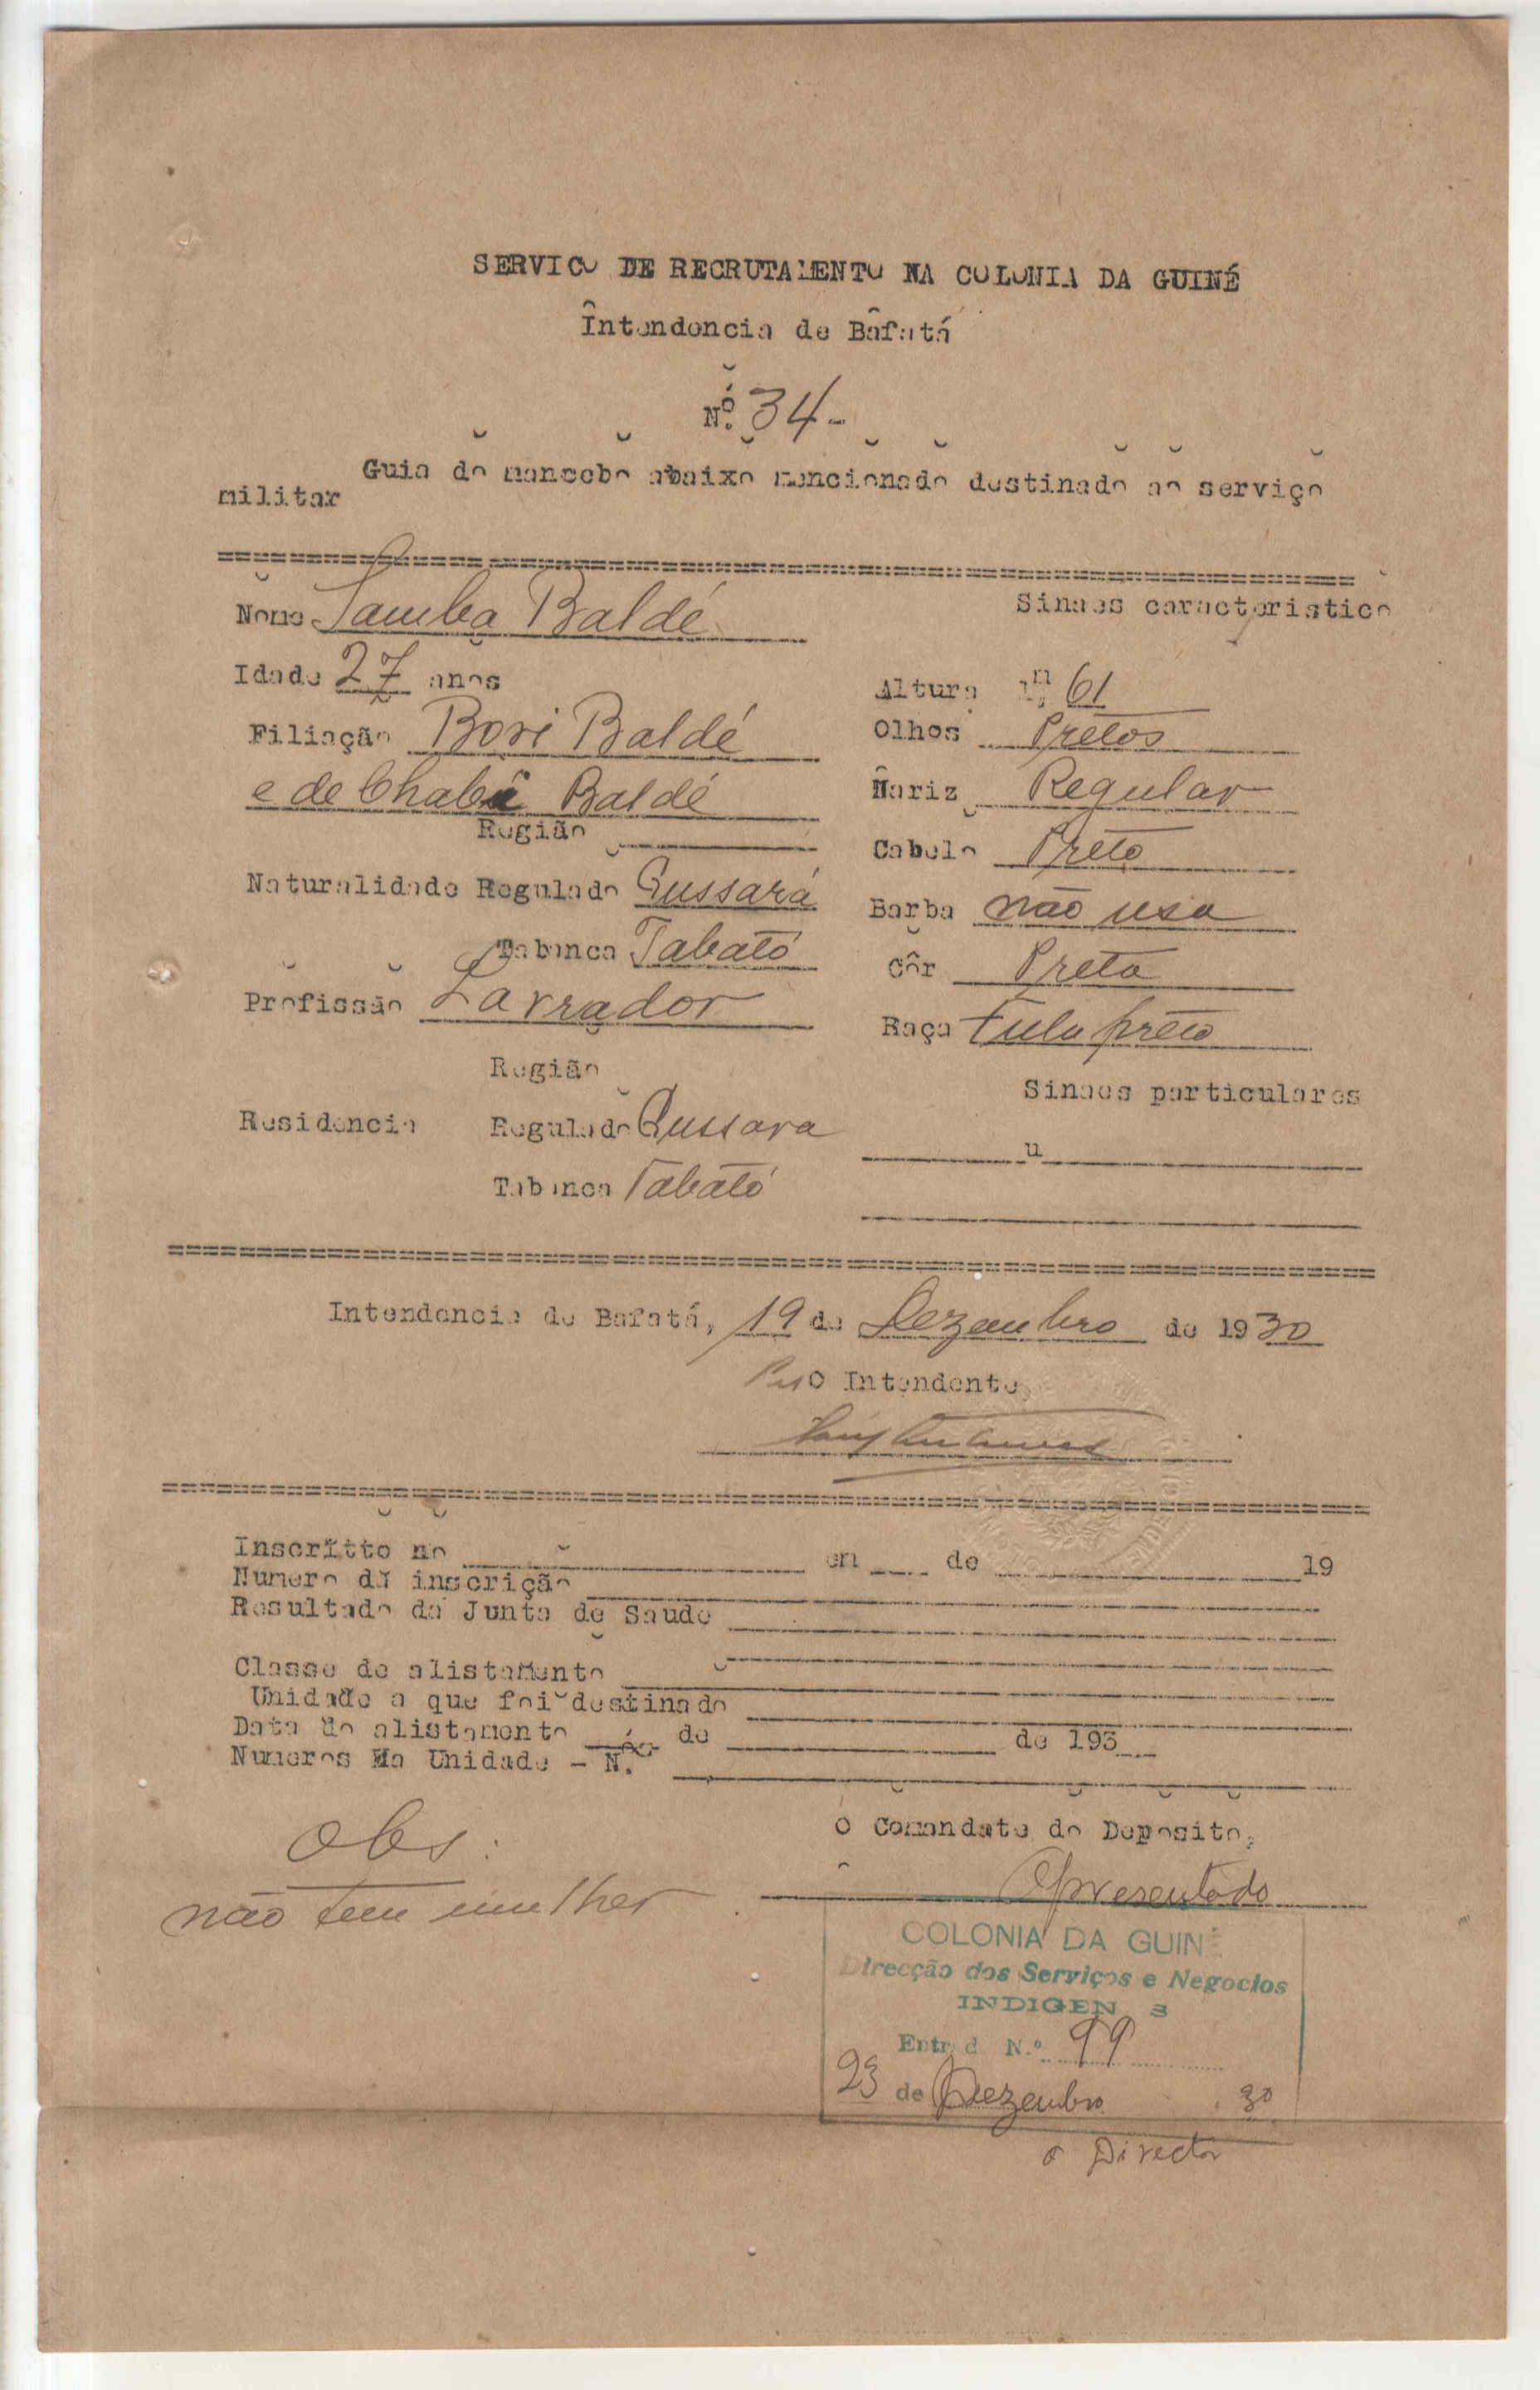 SERVICO DE RECRUTAMENTO NA COLONIA DA GUINÉ
Intendencia de Bafatá
Nº. 34-
Guia do mancebo abaixo mencionado destinado ao serviço
militar
Nome Samba Baldé
Sinaes caracteristico
Idade 27 anos
Altura 1m, 61
Filiação Bori Baldé
Olhos Pretos
e de Baldé
Nariz Regular
Região
Cabelo Preto
Naturalidade Regulado Gussará
Barba não usa
Tabanca Tabató
Côr Preta
Profissão Lavrador
Raça Fula preto
Região
Sinaes particulares
Residencia Regulado Gussara
u
Tabanca Tabató
Intendencia de Bafatá, 19 de Dezembro de 1930
O Intendente
Inscritto no em de 19
Numero da inscrição
Resultado da Junta de Saude
Classe de alistamento
Unidade a que foi destinado
Data do alistamento de de 193
Numeros Na Unidade - N.
O Comandate do Deposito,
Obs:
não tem mulher
Apresentado
COLONIA DA GUINÉ
Direcção dos Serviços e Negocios
INDIGEN S
Entrad N.º 99
23 de Dezembro 30
O Director